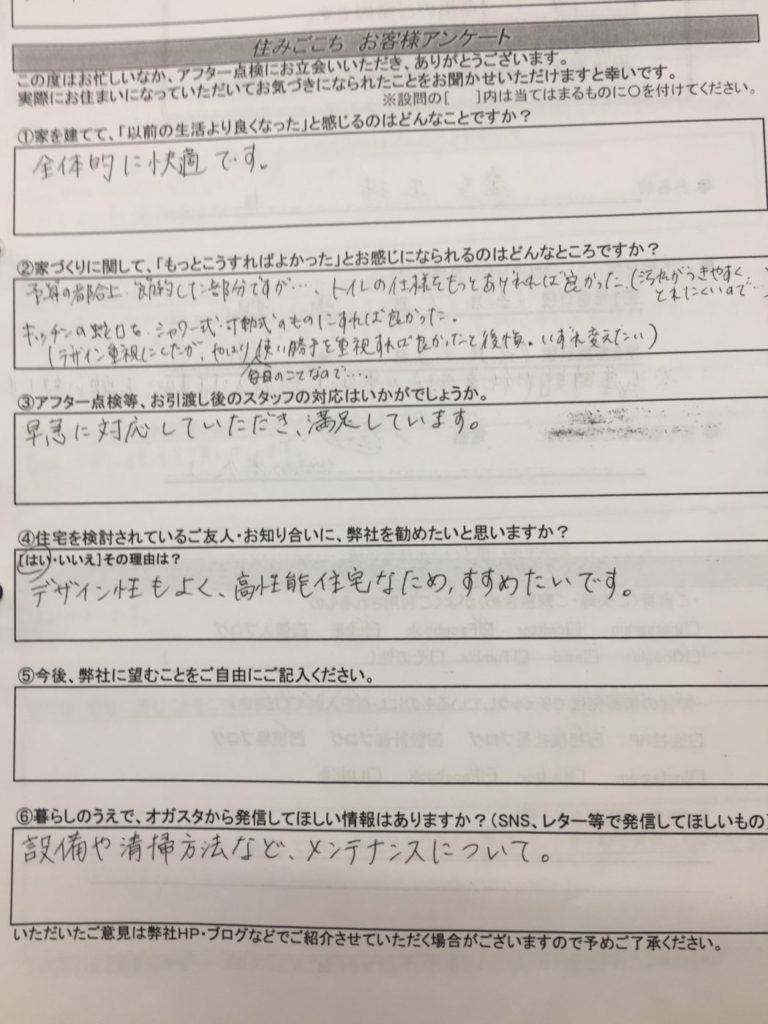 住みごこち お客様アンケート
この度はお忙しいなか、アフター点検にお立会いいただき、ありがとうございます。
実際にお住まいになっていただいてお気づきになられたことをお聞かせいただけますと幸いです。
※設問の[　]内は当てはまるものに○を付けてください。
①家を建てて、「以前の生活より良くなった」と感じるのはどんなことですか？
全体的に快適です。
②家づくりに関して、「もっとこうすればよかった」とお感じになられるのはどんなところですか？
予算の都合上、節約した部分ですが…、トイレの仕様をもっとあげれば良かった。(汚れがつきやすく、
とれにくいので…)
キッチンの蛇口を、シャワー式・可動式のものにすれば良かった。
(デザイン重視にしたが、やはり使い勝手を重視すれば良かったと後悔。いずれ変えたい)
毎日のことなので……
③アフター点検等、お引渡し後のスタッフの対応はいかがでしょうか。
早急に対応していただき、満足しています。
④住宅を検討されているご友人・お知り合いに、弊社を勧めたいと思いますか？
[はい・いいえ]その理由は？
デザイン性もよく、高性能住宅なため、すすめたいです。
⑤今後、弊社に望むことをご自由にご記入ください。
⑥暮らしのうえで、オガスタから発信してほしい情報はありますか？(SNS、レター等で発信してほしいもの)
設備や清掃方法など、メンテナンスについて。
いただいたご意見は弊社HP・ブログなどでご紹介させていただく場合がございますので予めご了承ください。